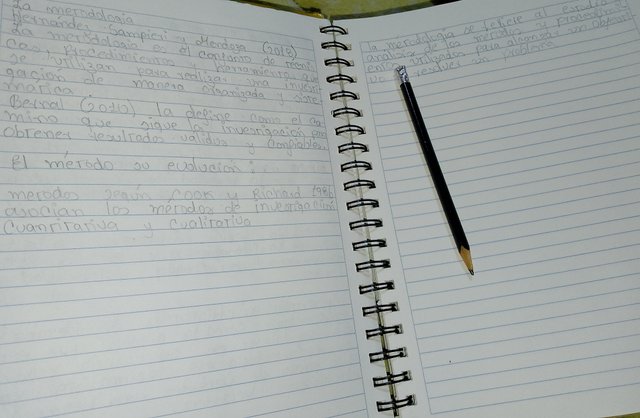 La metodología
Hernández Sampieri y Mendoza
La metodología es el conjunto de
cas, procedimientos y herramientas que
se utilizan para realizar una investi-
gación de manera organizada y siste-
mática
Bernal (2010) la define como el ca-
mino que sigue la investigación para
obtener resultados válidos y confiables
El método su evolución:
metodos según Cook y Richard
asocian los métodos de investigación
cuantitativa y cualitativa
la metodología se refiere al estudio
analisis de los métodos
utilizados para alcanzar un objetivo
resolver un problema